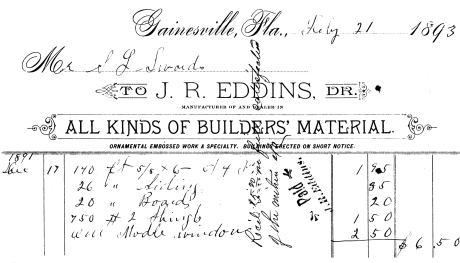 Gainesville, Fla., Feby 21 1893
Mr S L Swords
TO J. R. EDDINS, DR.
MANUFACTURER OF AND DEALER IN
ALL KINDS OF BUILDERS' MATERIAL.
ORNAMENTAL EMBOSSED WORK A SPECIALTY. BUILDINGS ERECTED ON SHORT NOTICE.
1891
Dec 17 140 ft 5/8 x 6 1 95
26 " Siding 85
20 " Boards 20
750 # 2 Shingls 1 50
Modle window 2 50
$6.50
of the within
Paid
J. R. Eddins